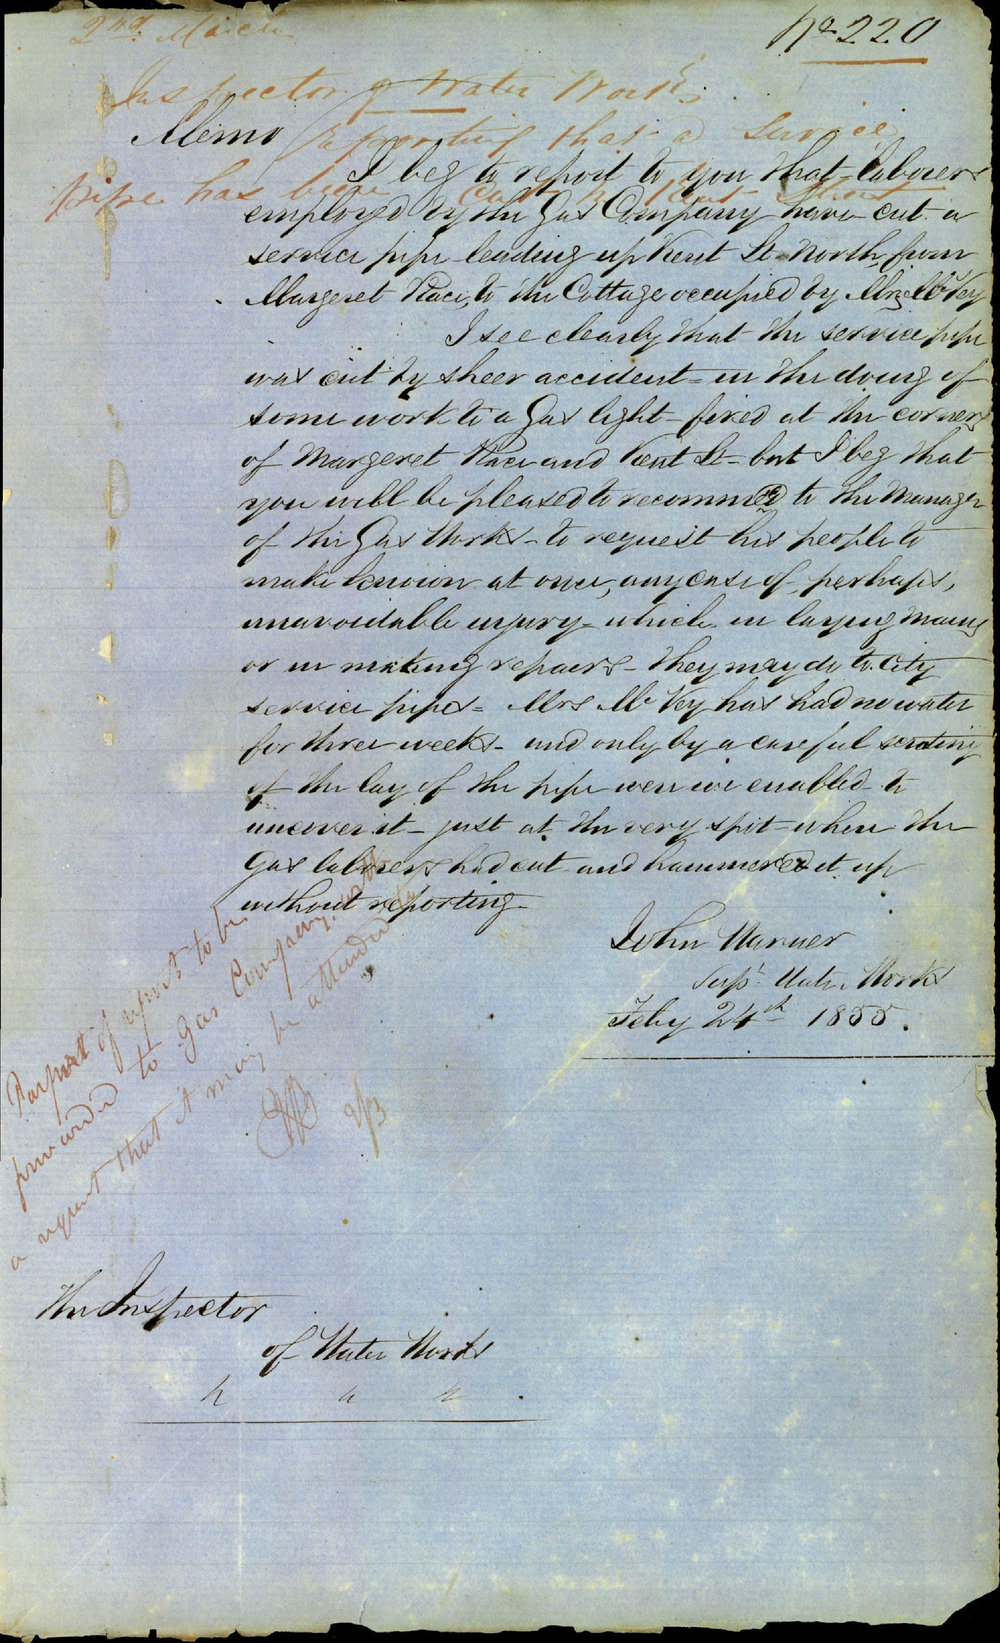 2nd March
No 220
Inspector of Water Works
reporting that a Service
pipe has been cut in Kent Street
Memo
I beg to report to you that laborers
employed by the Gas Company have cut a
service pipe leading up Kent St North, from
Margeret Place, to the Cottage occupied by Mrs McVey
I see clearly that the service pipe
was cut by sheer accident - in the doing of
some work to a Gas light - fixed at the corner
of Margeret Place and Kent St - but I beg that
you will be pleased to recommend to the Manager
of the Gas Works - to request his people to
make known at once, any case of, perhaps,
unavoidable injury - which in laying mains
or in making repairs - they may do to City
service pipes - Mrs McVey has had no water
for three weeks - and only by a careful scrutiny
of the lay of the pipe were we enabled to
uncover it - just at the very spot - where the
Gas laborers had cut and hammered it up
without reporting -
John
Supt Water Works
Feby 24th 1855.
Purport of report to be
forwarded to Gas Company with
a request that it may be attended to
2/3
The Inspector
of Water Works